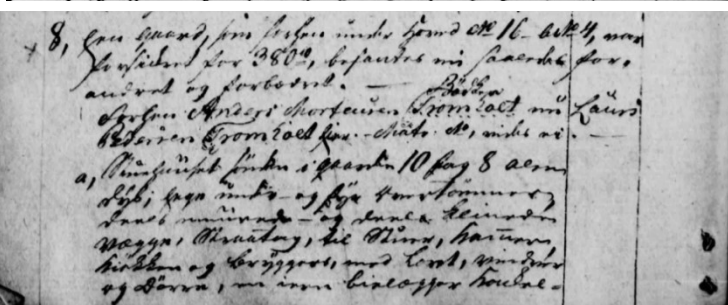 8, Een Gaard, som forhen under Hoved No 16 - No 4, var
forsikret for 380 , befandtes nu saaledes for-
andret og forbedret. —
forhen Anders Mortensen Tromholt nu Laurs
Pedersen Tromholt No,
a, Stuehuuset sønden i Gaarden 10 fag 8 alen
dyb, eege under- og fyr overtømmer,
deels muurede - og deels kleinede
vægge, Straatag, til Stuer, Kammere,
Kiøkken og Bryggers, med Loft, vinduer
og Dørre, en iern bielægger Kakkel-